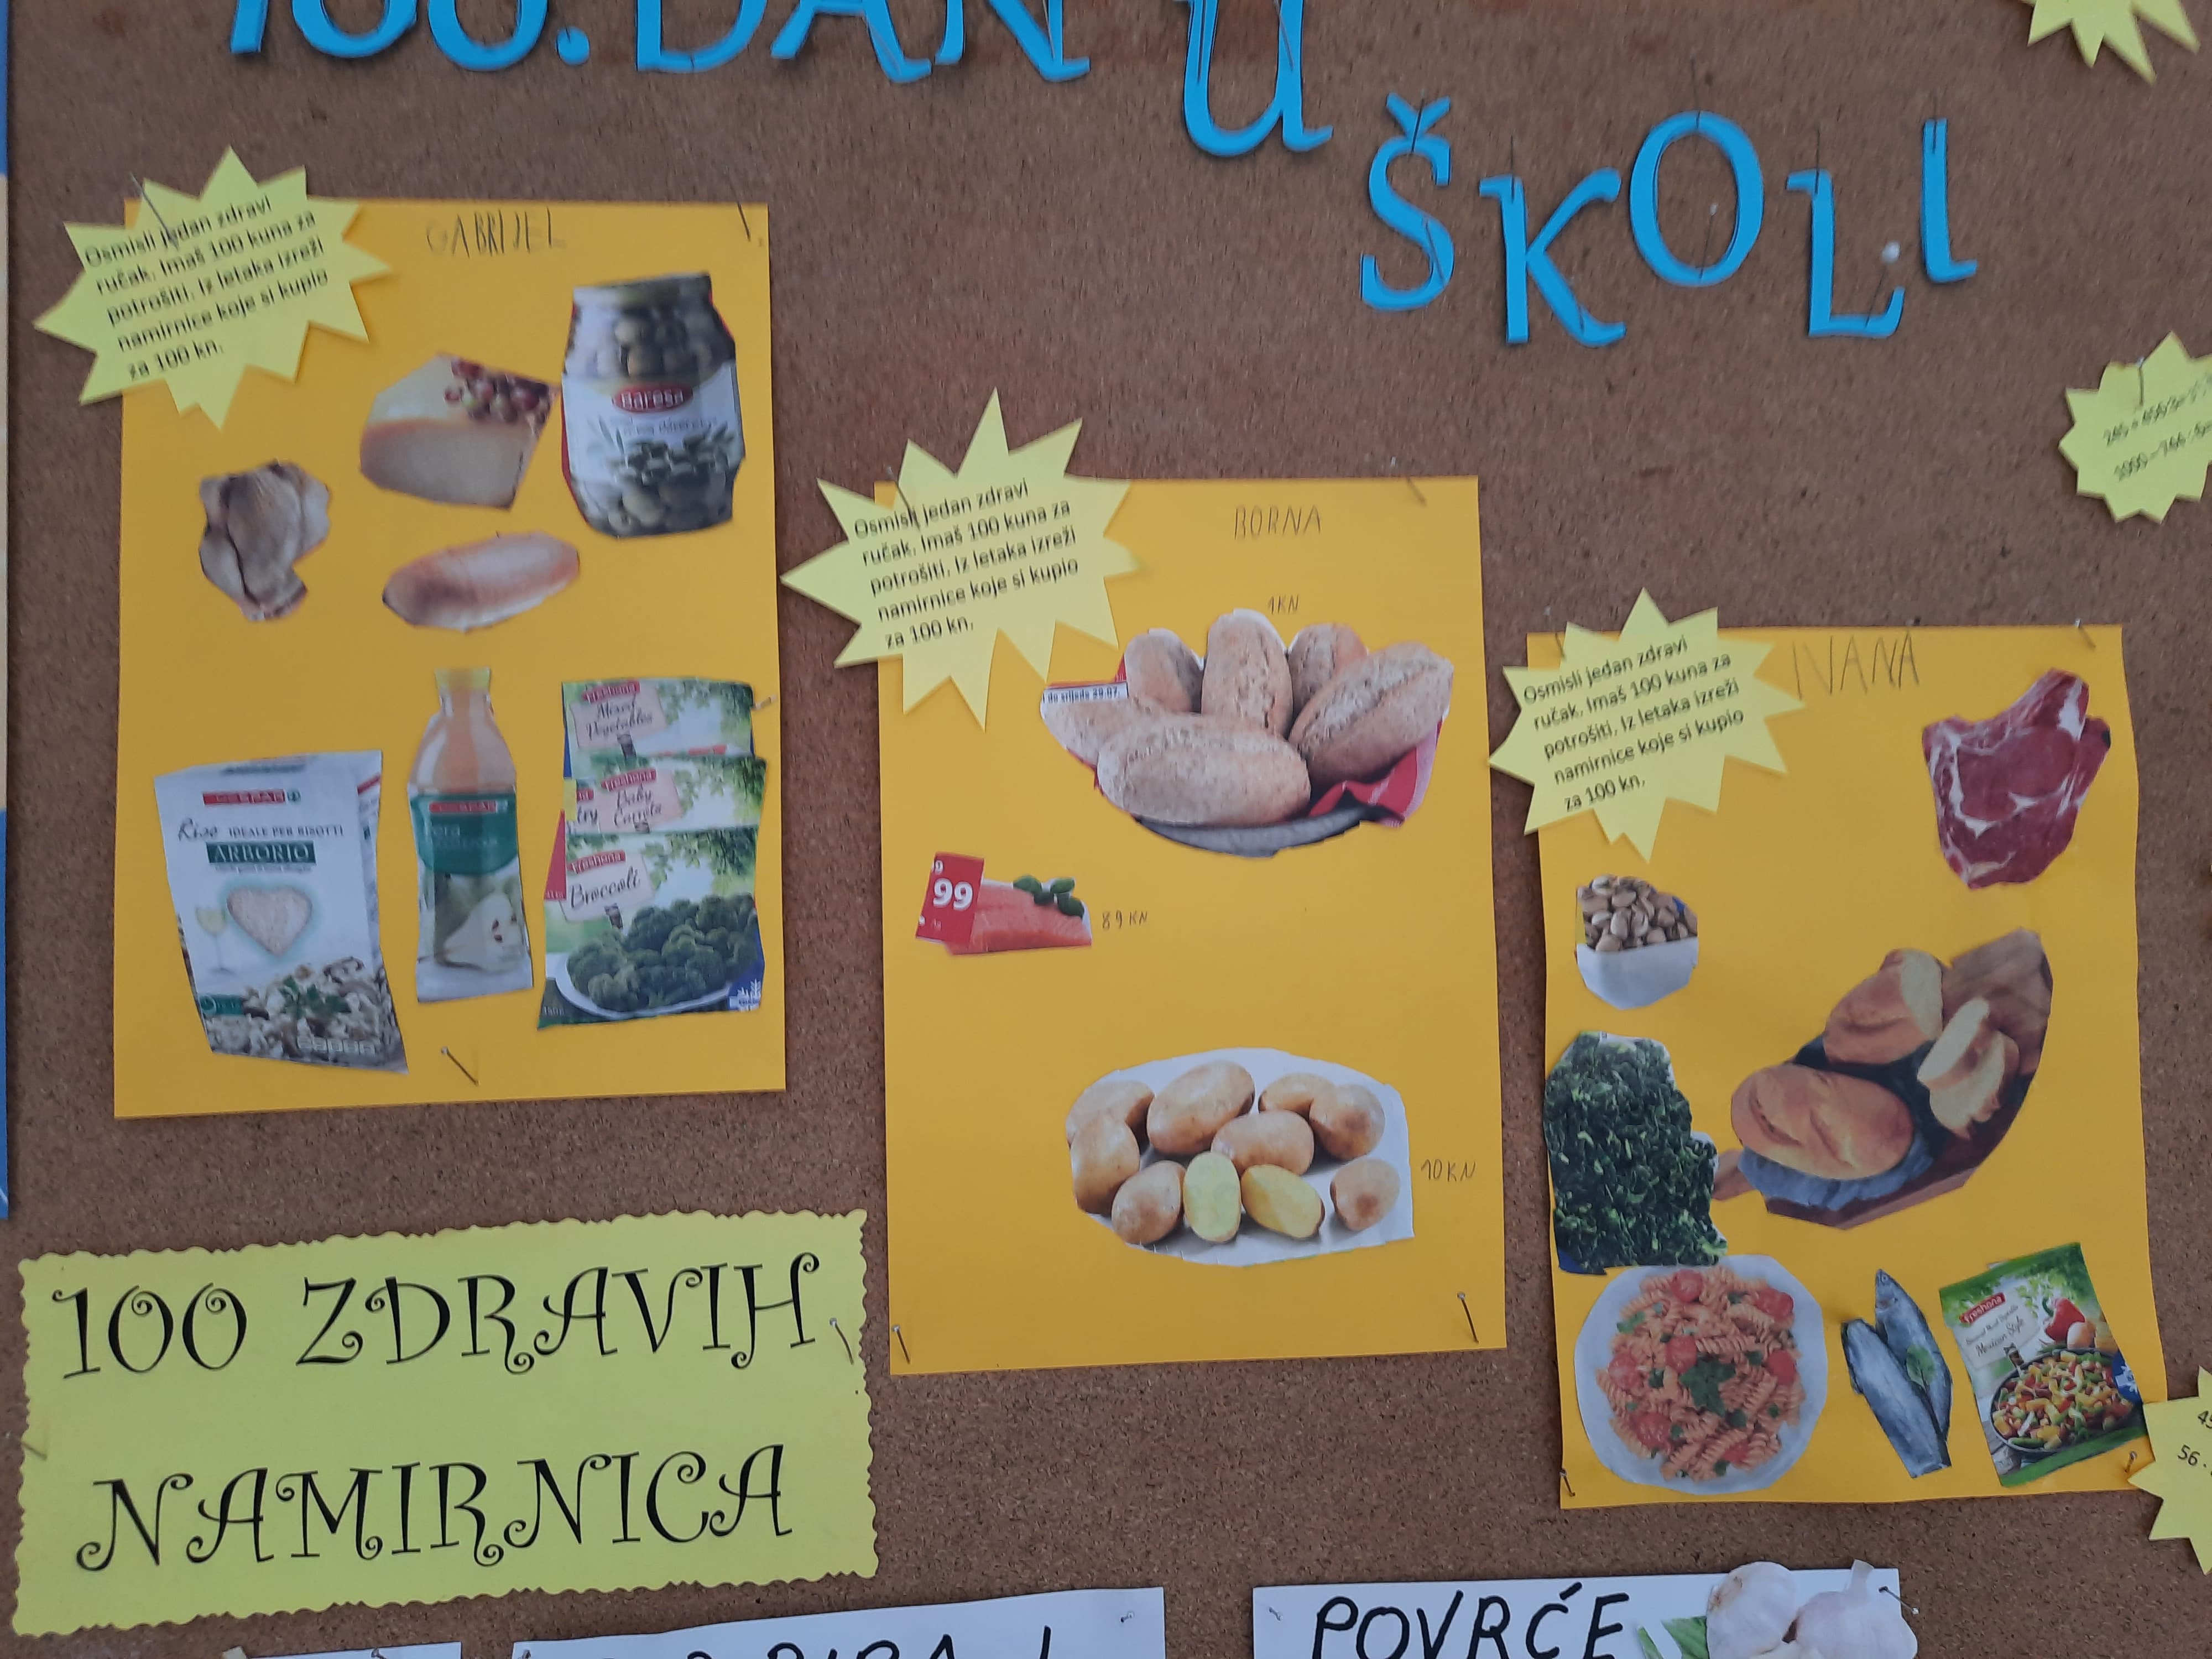 100. DAN U
ŠKOLI
Osmisli jedan zdravi
ručak. Imaš 100 kuna za
potrošiti. Iz letaka izreži
namirnice koje si kupio
za 100 kn.
GABRIJEL
Baresa
SPAR
Riso IDEALE PER RISOTTI
ARBORIO
SPAR
Freshona
Mixed
Vegetables
Freshona
Baby
Carrots
try
Freshona
Broccoli
Osmisli jedan zdravi
ručak. Imaš 100 kuna za
potrošiti. Iz letaka izreži
namirnice koje si kupio
za 100 kn.
BORNA
1KN
do srijede 29.07.
9
99
89 KN
10KN
Osmisli jedan zdravi
ručak. Imaš 100 kuna za
potrošiti. Iz letaka izreži
namirnice koje si kupio
za 100 kn.
IVANA
Freshona
Mexican Style
56
100 ZDRAVIH
NAMIRNICA
POVRĆE